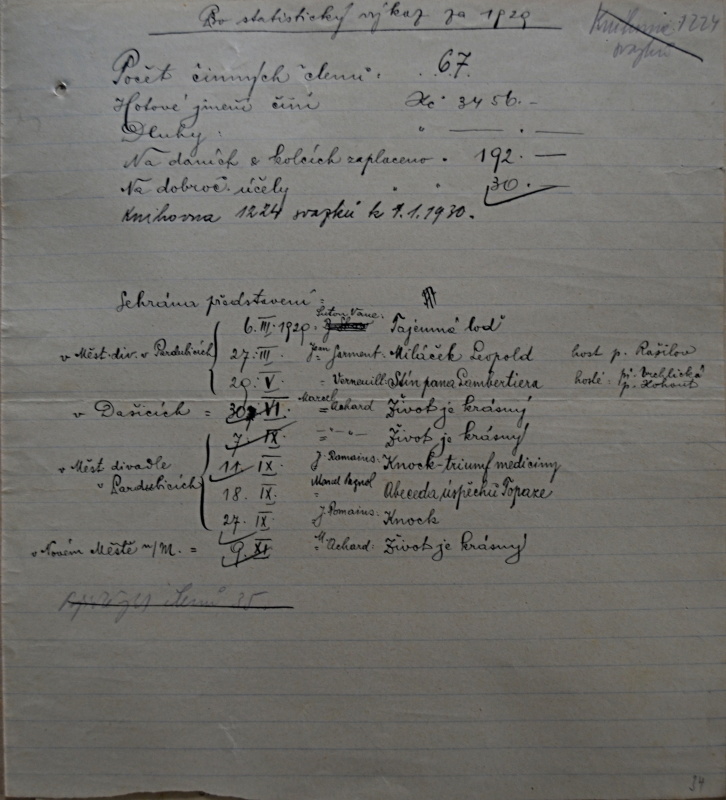 Pro statistický výkaz za 1929
Knihovna 1224
svazků
Počet činných členů: 67.
Hotové jmění činí Kč 3456.–
Dluhy: " —— . —
Na daních & kolcích zaplaceno . 192. —
Na dobroč. účely " " 30. —
Knihovna 1224 svazků k 1.1.1930.
Sehrána představení:
v Měst. div. v Pardubicích
6. III. 1929. Sutton Vane: Tajemná loď
27. III. Jean Sarment: Miláček Leopold host p. Rašilov
29. V = Verneuill: Stín pana Lambertiera hosté: pí. Vrchlická
p. Kohout
v Dašicích = 30. VI. Marcel Achard Život je krásný
7. IX =" – " – Život je krásný
v Měst. divadle
v Pardubicích
11. IX. J. Romains: Knock-triumf medicíny
18. IX. Marcel Pagnol Abeceda úspěchů Topaze
27. IX J. Romains: Knock
v Novém Městě n/M. = 9. XI. = M. Achard: Život je krásný
členů 35.
34